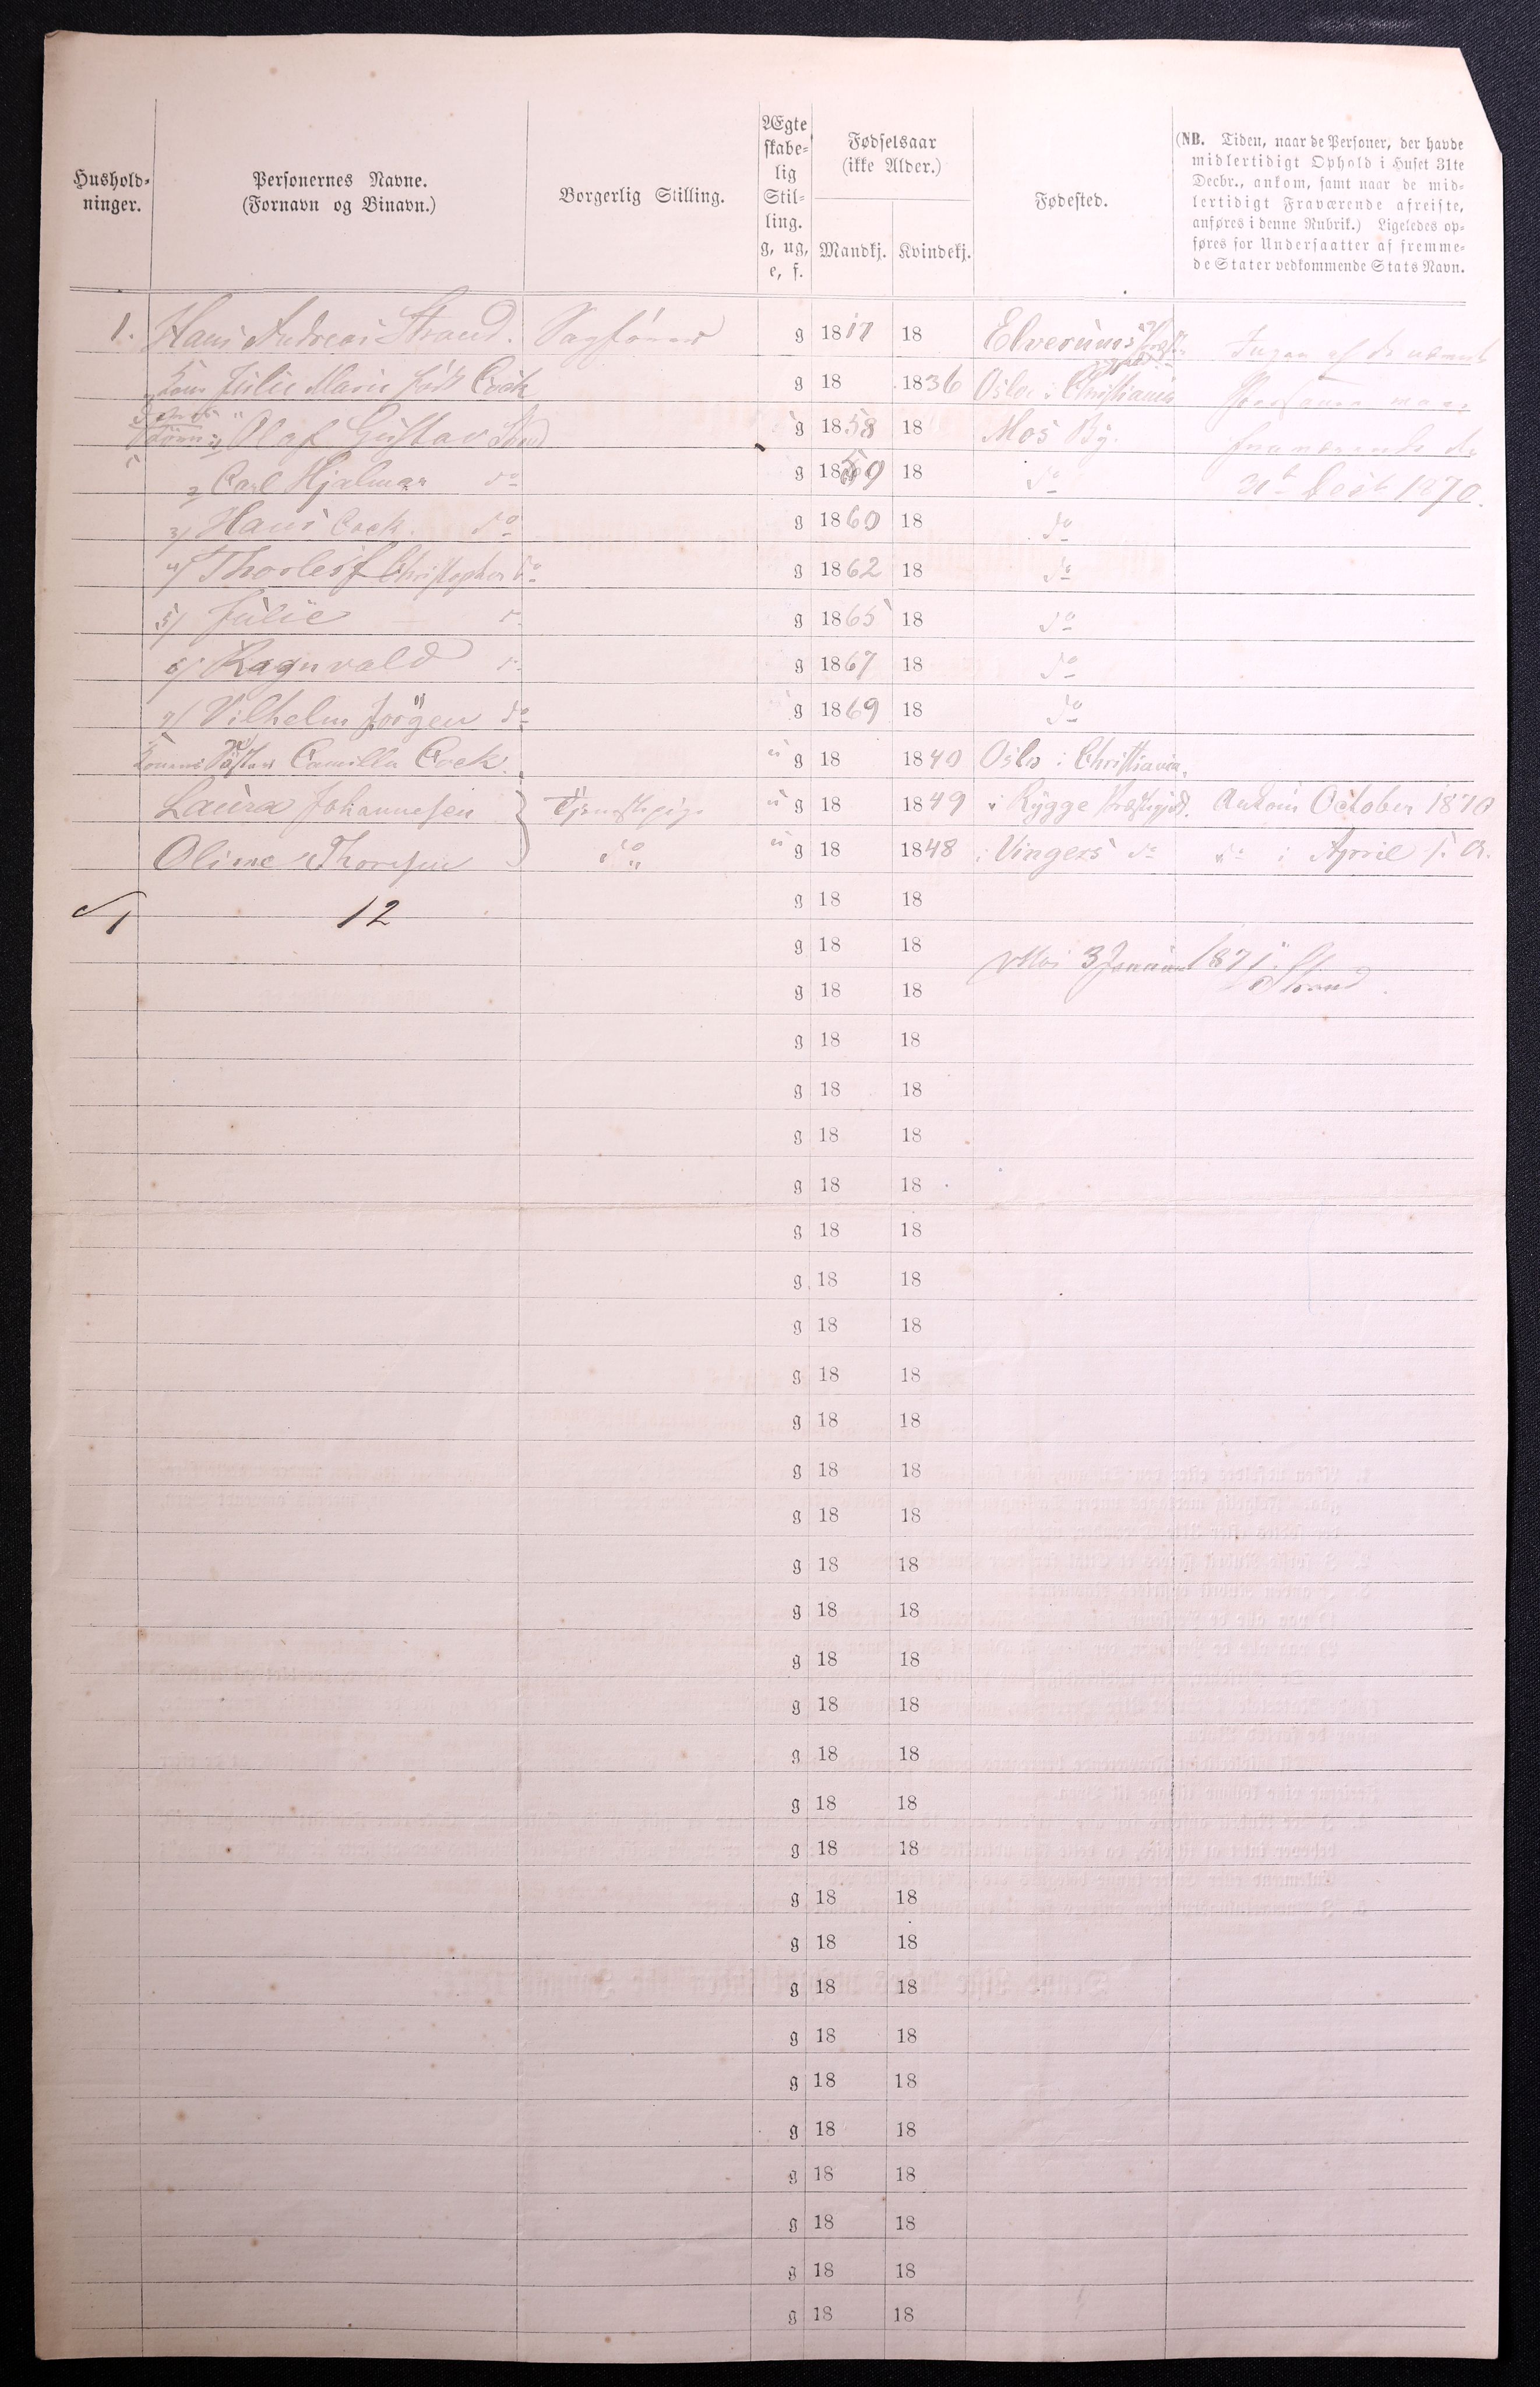 Hushold-
ninger.
Personernes Navne.
(Fornavn og Binavn.)
Borgerlig Stilling.
Ægte
skabe-
lig
Stil-
ling.
g, ug,
e, f.
Fødselsaar
(ikke Alder.)
Mandkj.
Kvindekj.
Fødested.
(NB. Tiden, naar de Personer, der havde
midlertidigt Ophold i Huset 31te
Decbr., ankom, samt naar de mid-
lertidigt Fraværende afreiste,
anføres i denne Rubrik.) Ligeledes op-
føres for Undersaatter af fremme-
de Stater vedkommende Stats Navn.
1. Hans Andreas Strand. Sagfører g 1817 18 Elverums Ingen af de nævnte
Julie Marie født Cock g 18 1836 Oslo i Christiania
1) Olaf Gustav Strand g 1858 18 Mos By. fraværende de
2) Carl Hjalmar do g 1859 18 do 31te Decb 1870.
3) Hans Cock do g 1860 18 do
4) Thorleif Christopher do g 1862 18 do
5) Julie do g 1865 18 do
6) Ragnvald do g 1867 18 do
7) Vilhelm Jørgen do g 1869 18 do
Konens Søster Camilla Cock. u g 18 1840 Oslo i Christiania.
Laura Johannesen Tjenestepige u g 18 1849 i Rygge Præstegjd. Ankom October 1870
Oline Thoresen do u g 18 1848 i Vingers do do i April f. A.
12 g 18 18
g 18 18 Mos 3 Januar 1871
g 18 18 Strand
g 18 18
g 18 18
g 18 18
g 18 18
g 18 18
g 18 18
g 18 18
g 18 18
g 18 18
g 18 18
g 18 18
g 18 18
g 18 18
g 18 18
g 18 18
g 18 18
g 18 18
g 18 18
g 18 18
g 18 18
g 18 18
g 18 18
g 18 18
g 18 18
g 18 18
g 18 18
g 18 18
g 18 18